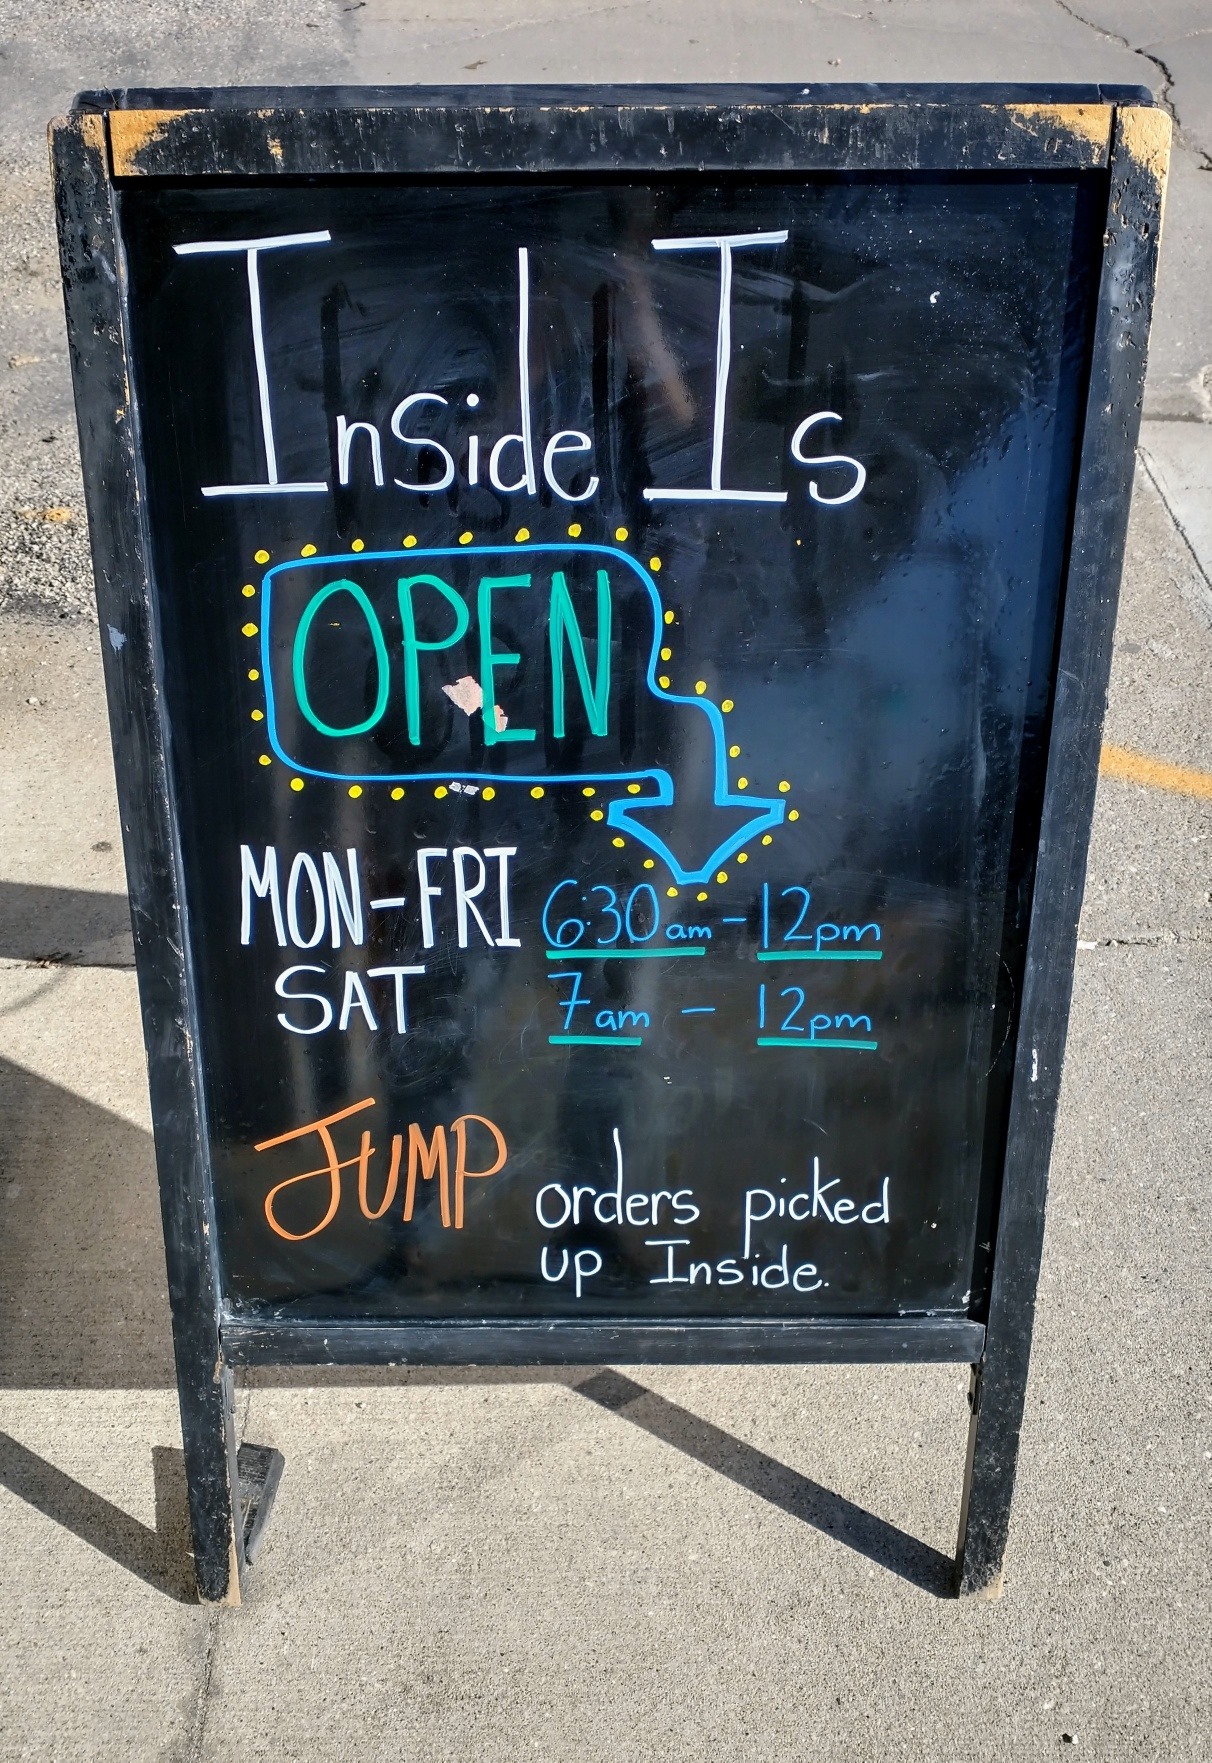 Inside Is
OPEN
MON-FRI 6:30am - 12pm
SAT 7am - 12pm
JUMP orders picked
up Inside.